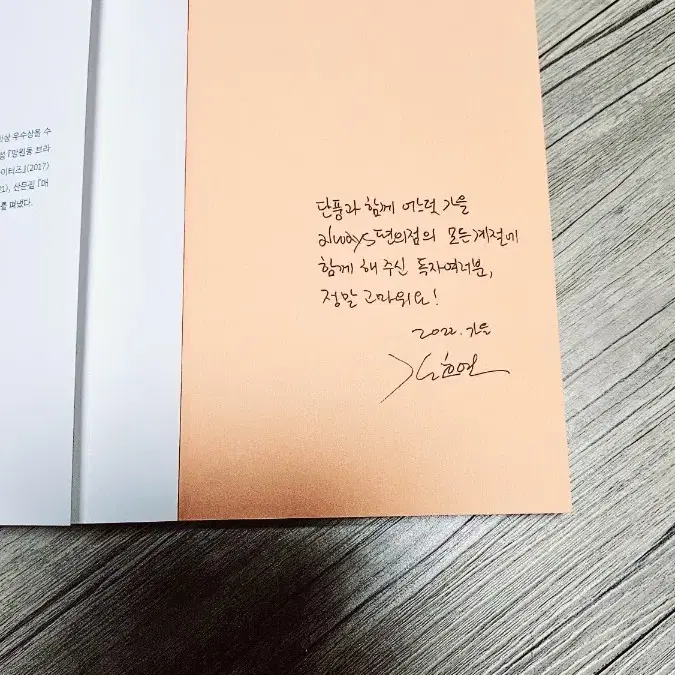 상 우수상을 수
『망원동 브라
이티즈』(2017)
21), 산문집 『매
를 펴냈다.
단풍과 함께 어느덧 가을
always편의점의 모든 계절에
함께 해 주신 독자여러분,
정말 고마워요!
2022. 가을